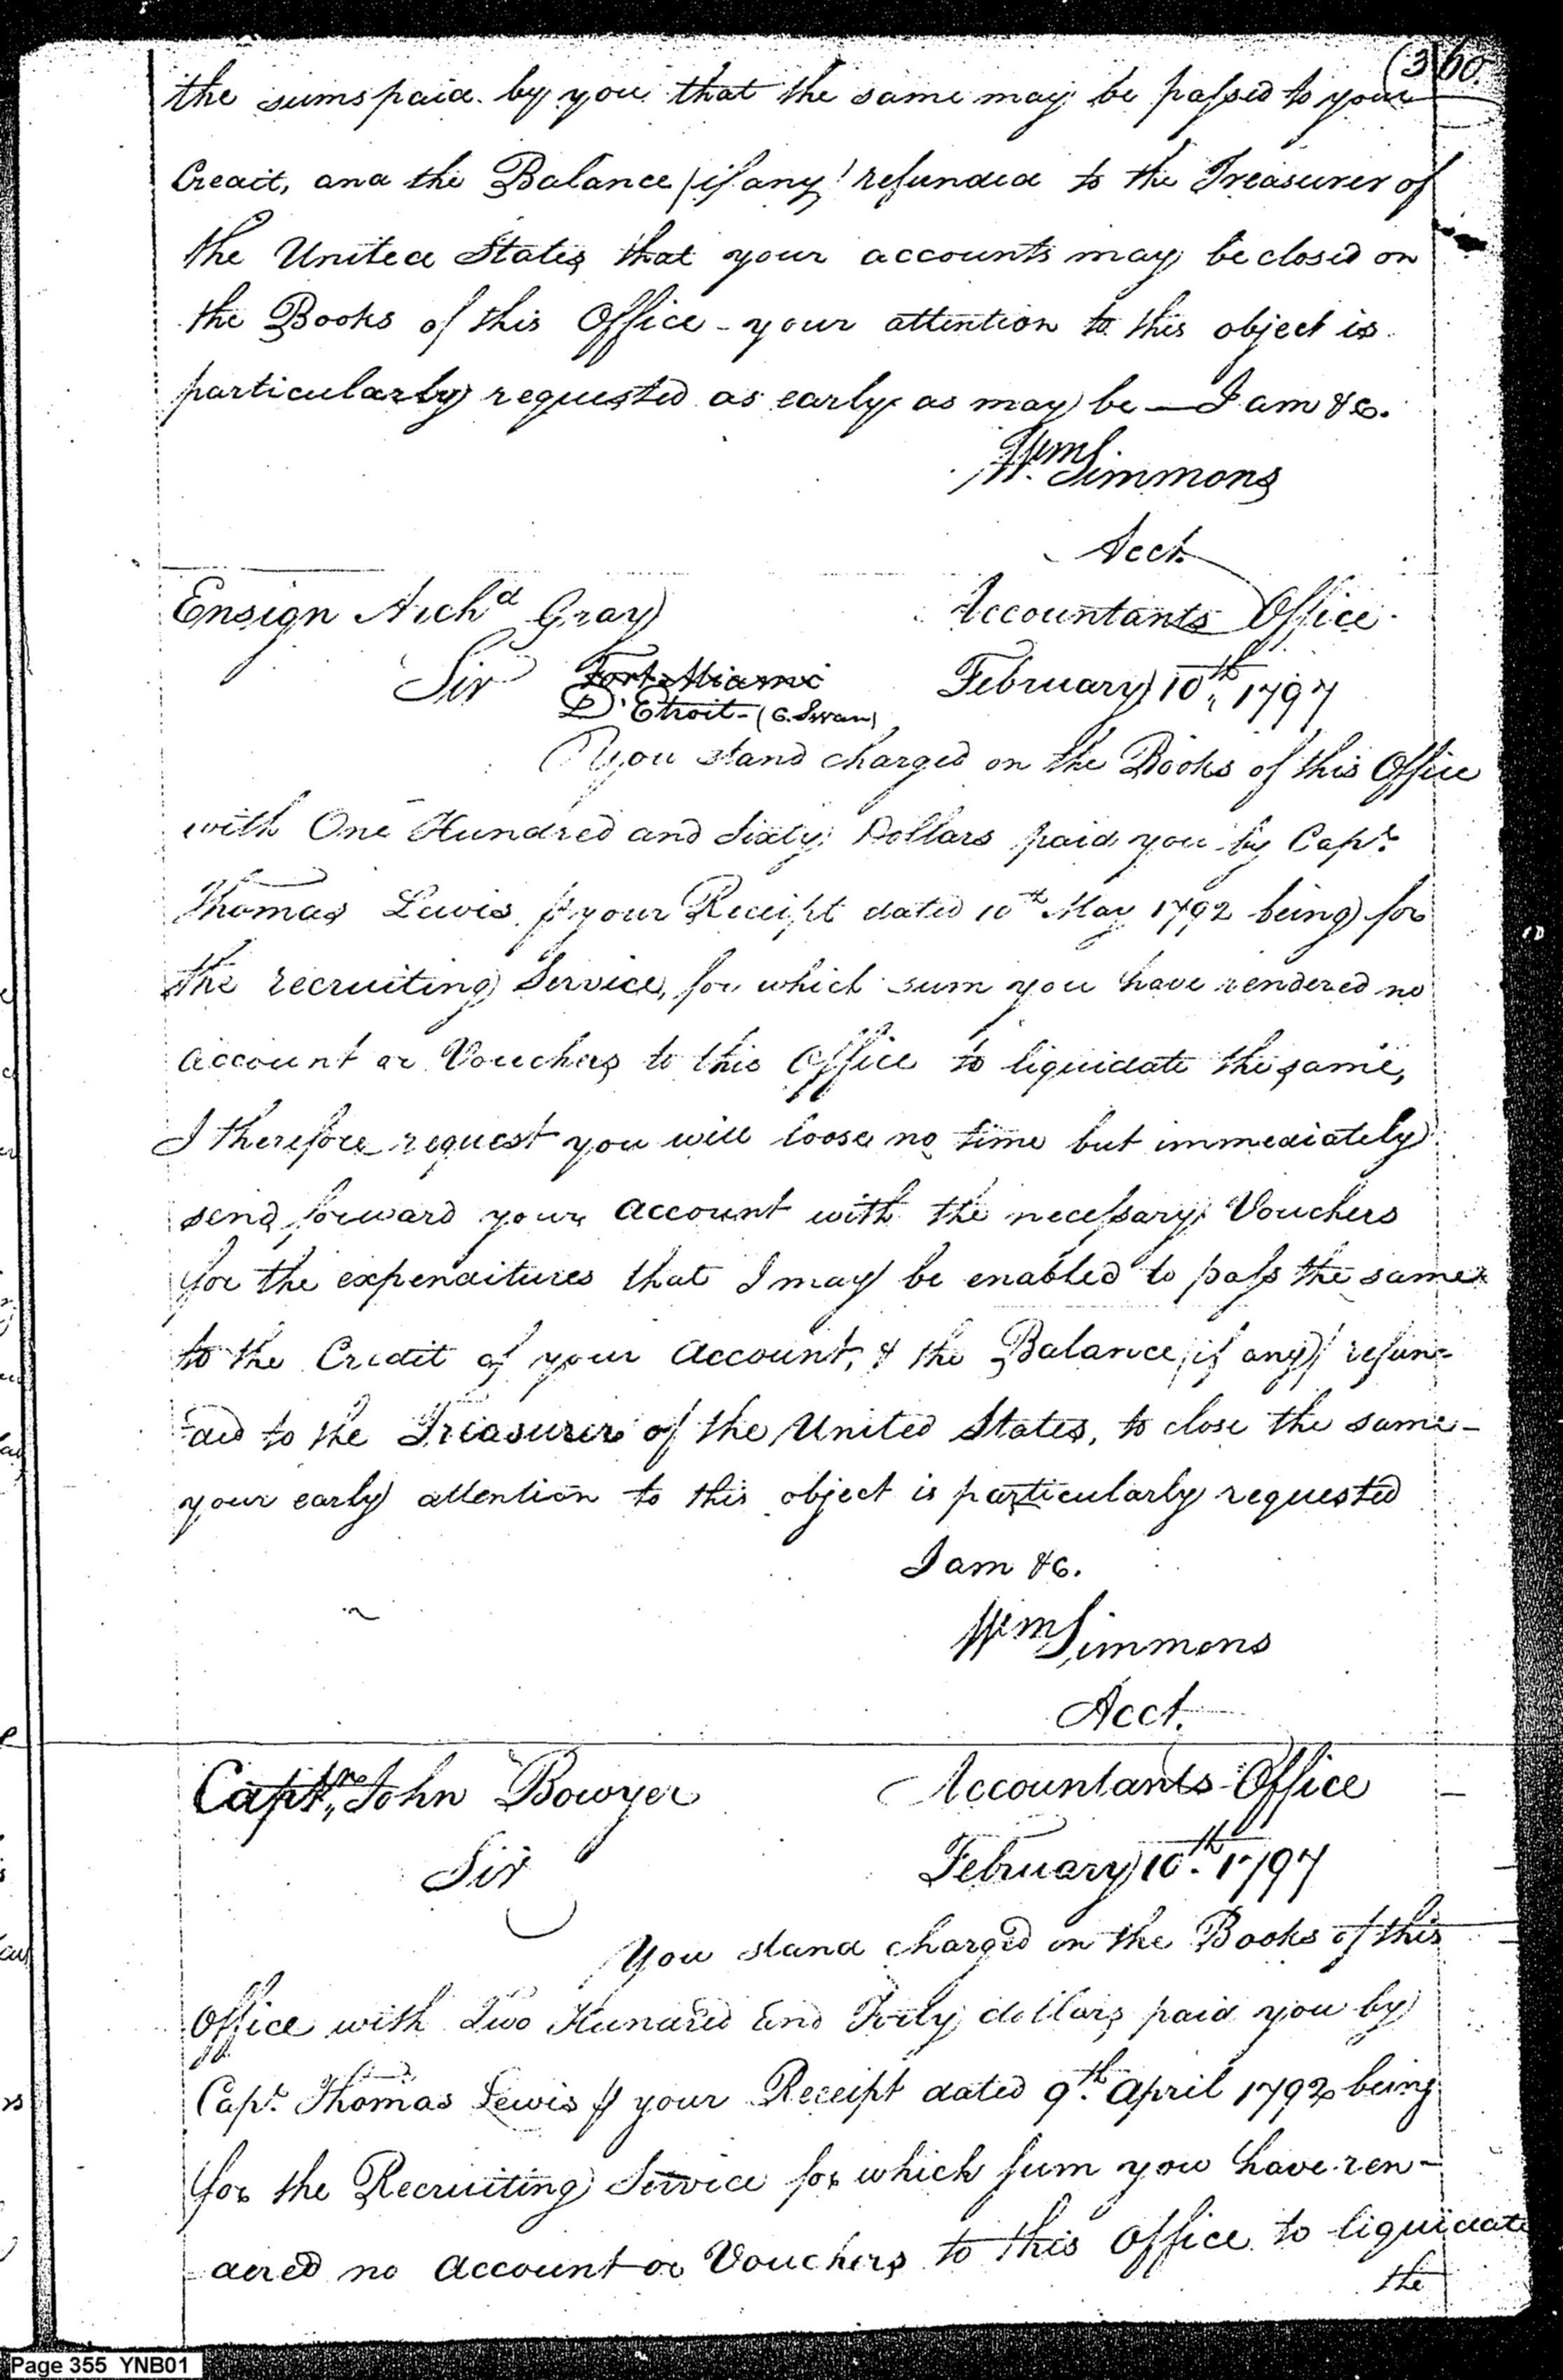 (360.
the sums paid by you that the same may be passed to your
Credit, and the Balance (if any) refunded to the Treasurer of
the United States that your accounts may be closed on
the Books of this Office - your attention to this object is
particularly requested as early as may be — I am &c.
Wm Simmons
Acct.
Ensign Archd Gray
Accountants Office
Sir
Fort Miami
February 10th, 1797
D'Etroit - (C. Swan)
You stand charged on the Books of this Office
with One Hundred and Sixty Dollars paid you by Capt.
Thomas Lewis p your Receipt dated 10th May 1792 being for
the recruiting Service, for which sum you have rendered no
account or Vouchers to this Office to liquidate the same,
I therefore request you will loose no time but immediately
send forward your account with the necessary Vouchers
for the expenditures that I may be enabled to pass the same
to the Credit of your account, & the Balance (if any) refun=
=ded to the Treasurer of the United States, to close the same -
your early attention to this object is particularly requested
I am &c.
Wm Simmons
Acct.
Captn. John Bowyer
Accountants Office
Sir
February 10th. 1797
You stand charged on the Books of this
Office with Two Hundred and Forty dollars paid you by
Capt. Thomas Lewis p your Receipt dated 9th. April 1792 being
for the Recruiting Service for which sum you have ren-
-dered no account or Vouchers to this Office to liquidate
the
Page 355 YNB01